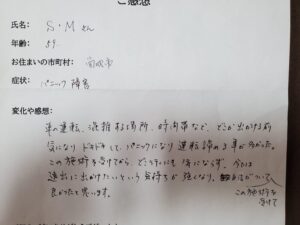 ご感想
氏名: S・M さん
年齢: 59
お住まいの市町村:
症状: パニック障害
変化や感想:
車の運転、混雑する場所、時間帯など、どこか出かける前
気になり ドキドキして、パニックになり 運転諦める事が多かった。
この施術を受けてから、どこに行くにも気にならず、今は
遠出に出かけたいという気持ちが強くなり、
この施術を
受けて
良かったと思います。